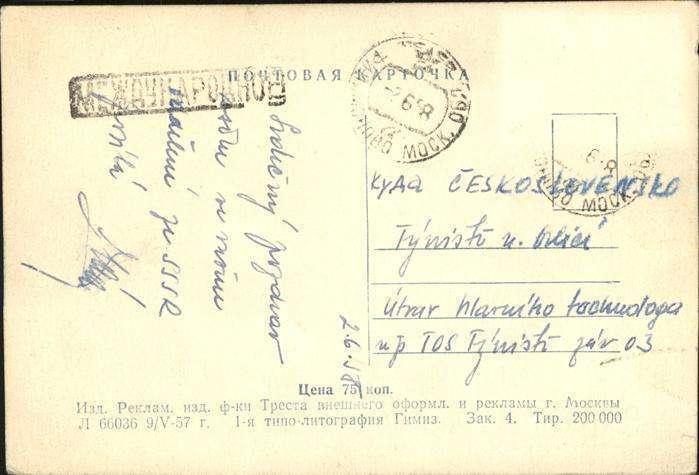 ПОЧТОВАЯ КАРТОЧКА
МЕЖДУНАРОДНОЕ
МОСК. ОБЛ.
-2 6 58
МОСК. ОБ
Srdečný pozdrav
ze SSSR
2.6.58
Куда ČESKOSLOVENSKO
Týniště n. Orlicí
Útvar hlavního technologa
n.p TOS Týniště záv 03
Цена 75 коп.
Изд. Реклам. изд. ф-ки Треста внешнего оформл. и рекламы г. Москвы
Л 66036 9/V-57 г. 1-я типо-литография Гимиз. Зак. 4. Тир. 200 000